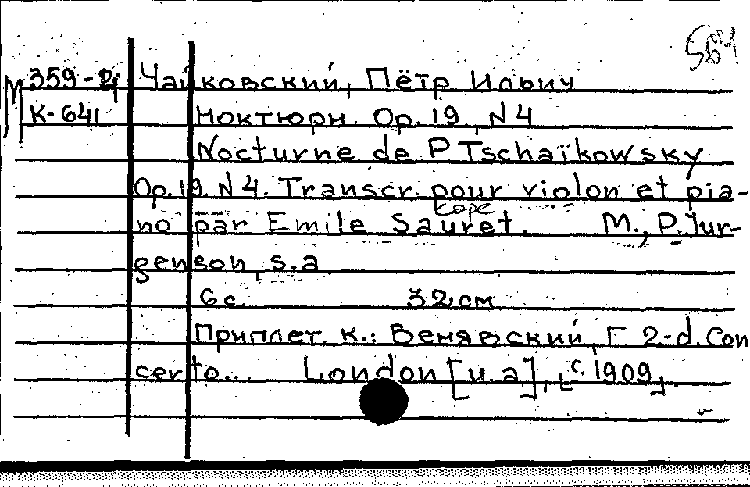 564
М 359-2 Чайковский, Пётр Ильич
К-641 Ноктюрн. Op. 19, N 4
Nocturne de P. Tschaïkowsky
Op. 19 N 4. Transcr. pour violon et pia-
no par Emile Sauret. М., P. Jur-
genson, s.a
6 с. 32 см
Приплет. к.: Венявский, Г 2-d. Con
certo... London [u. a], [c. 1909]